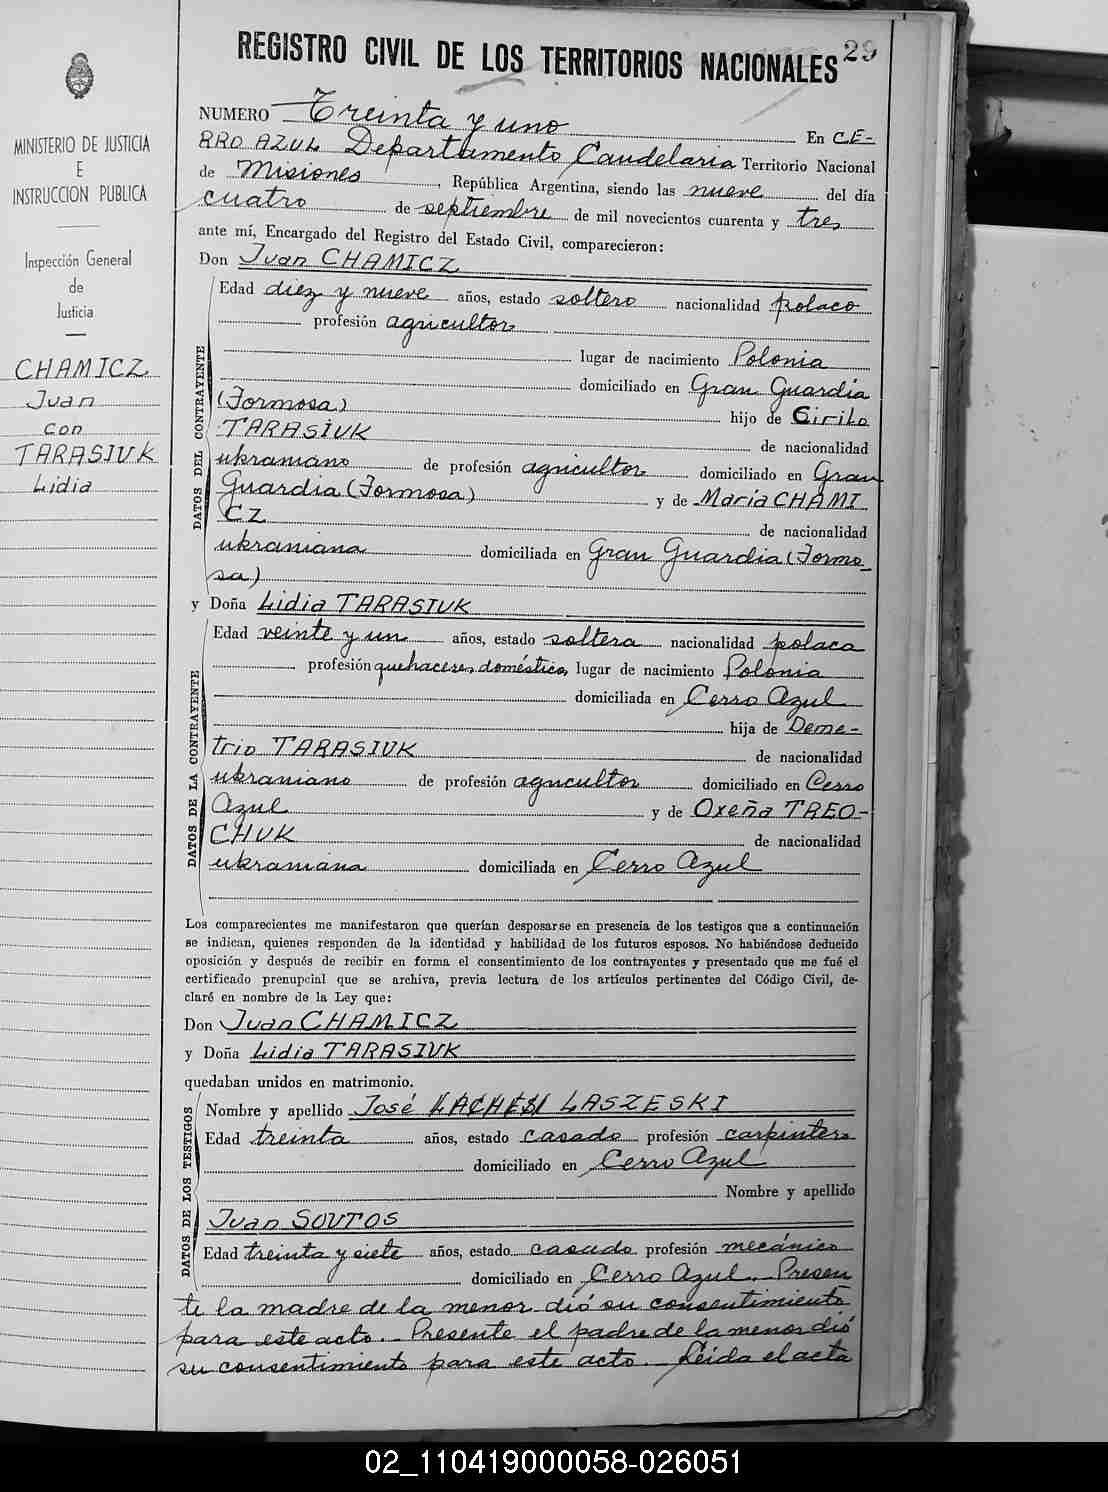 MINISTERIO DE JUSTICIA
E
INSTRUCCION PUBLICA
Inspección General
de
Justicia
CHAMICZ
Juan
con
TARASIUK
Lidia
29
REGISTRO CIVIL DE LOS TERRITORIOS NACIONALES
NUMERO Treinta y uno En CE-
RRO AZUL Departamento Candelaria Territorio Nacional
de Misiones, República Argentina, siendo las nueve del día
cuatro de septiembre de mil novecientos cuarenta y tres
ante mí, Encargado del Registro del Estado Civil, comparecieron:
Don Juan CHAMICZ
DATOS DEL CONTRAYENTE
Edad diez y nueve años, estado soltero nacionalidad polaco
profesión agricultor
lugar de nacimiento Polonia
domiciliado en Gran Guardia
(Formosa) hijo de Cirilo
TARASIUK de nacionalidad
ukraniano de profesión agricultor domiciliado en Gran
Guardia (Formosa) y de Maria CHAMI
CZ de nacionalidad
ukraniana domiciliada en Gran Guardia (Formo-
sa)
y Doña Lidia TARASIUK
DATOS DE LA CONTRAYENTE
Edad veinte y un años, estado soltera nacionalidad polaca
profesión quehaceres domésticos lugar de nacimiento Polonia
domiciliada en Cerro Azul
hija de Deme-
trio TARASIUK de nacionalidad
ukraniano de profesión agricultor domiciliado en Cerro
Azul y de Oxeña TREO-
CHUK de nacionalidad
ukraniana domiciliada en Cerro Azul
Los comparecientes me manifestaron que querían desposarse en presencia de los testigos que a continuación
se indican, quienes responden de la identidad y habilidad de los futuros esposos. No habiéndose deducido
oposición y después de recibir en forma el consentimiento de los contrayentes y presentado que me fué el
certificado prenupcial que se archiva, previa lectura de los artículos pertinentes del Código Civil, de-
claré en nombre de la Ley que:
Don Juan CHAMICZ
y Doña Lidia TARASIUK
quedaban unidos en matrimonio.
DATOS DE LOS TESTIGOS
Nombre y apellido José LASZESKI
Edad treinta años, estado casado profesión carpintero
domiciliado en Cerro Azul
Nombre y apellido
Juan SOUTOS
Edad treinta y siete años, estado casado profesión mecánico
domiciliado en Cerro Azul. Presen
te la madre de la menor dió su consentimiento
para este acto. Presente el padre de la menor dió
su consentimiento para este acto. Leida el acta
02_110419000058-026051